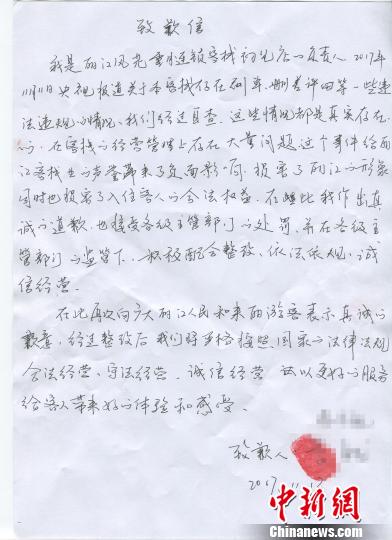 致歉信
我是丽江风花雪月连锁客栈初见店一负责人 2017年
11月11日央视报道关于本客栈存在刷单、删差评四等一些违
法违规的情况、我们经过自查、这些情况都是真实存在
的，在客栈的经营管理上存在大量问题这个事件给丽
江客栈的声誉带来了负面影响，损害了丽江的形象
同时也损害了入住客人的合法权益，在此我作出真
诚的道歉，也接受各级主管部门的处罚、并在各级主
管部门的监管下、积极配合整改、依法依规、诚
信经营。
在此再次向广大丽江人民和来丽游客表示真诚的
歉意，经过整改后我们将严格按照国家的法律法规
合法经营、守法经营、诚信经营 并以更好的服务
给客人带来好的体验和感受。
致歉人
2017.11.
中新网
www.Chinanews.com